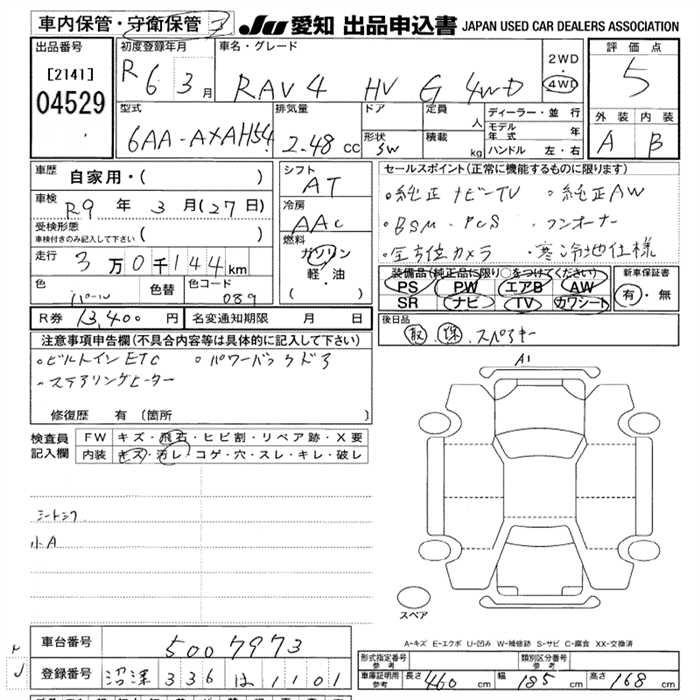 車内保管・守衛保管 3
JU 愛知 出品申込書 JAPAN USED CAR DEALERS ASSOCIATION
出品番号
[2141]
04529
初度登録年月
R 6 3 月
車名・グレード
RAV4 HV G 4WD
2WD
・
4WD
評価点
5
外装 内装
A B
型式
6AA-AXAH54
排気量
2.48 cc
ドア
形状
5W
定員
人
積載
kg
ディーラー・並行
モデル年式 年
ハンドル 左・右
車歴
自家用・( )
車検
R9 年 3 月(27日)
受検形態
車検付きのみ記入して下さい
( )
走行
3 万 0 千 144 km
色
パール
色替
色コード
089
シフト
AT
冷房
AAC
燃料
ガソリン
軽・油
( )
セールスポイント(正常に機能するものに限ります)
・純正ナビーTV ・純正AW
・BSM・PCS ・ワンオーナー
・全方位カメラ ・寒冷地仕様
装備品(純正品に限り○をつけてください)
PS PW エアB AW
SR ナビ TV カワシート
新車保証書
有・無
R券 13,400 円 名変通知期限 月 日
後日品
取 保 スペアキー
注意事項申告欄(不具合内容等は具体的に記入して下さい)
・ビルトインETC ・パワーバックドア
・ステアリングヒーター
修復歴 有 (箇所 )
検査員
記入欄
FW キズ・飛石・ヒビ割・リペア跡・X要
内装 キズ・汚レ・コゲ・穴・スレ・キレ・破レ
シートシワ
小A
A1
スペア
A-キズ E-エクボ U-凹み W-補修跡 S-サビ C-腐食 XX-交換済
車台番号 5007973
登録番号 沼津 336 は 1101
形式指定番号
参考
類別区分番号
参考
車庫証明用
参考
長さ 460 cm 幅 185 cm 高さ 168 cm